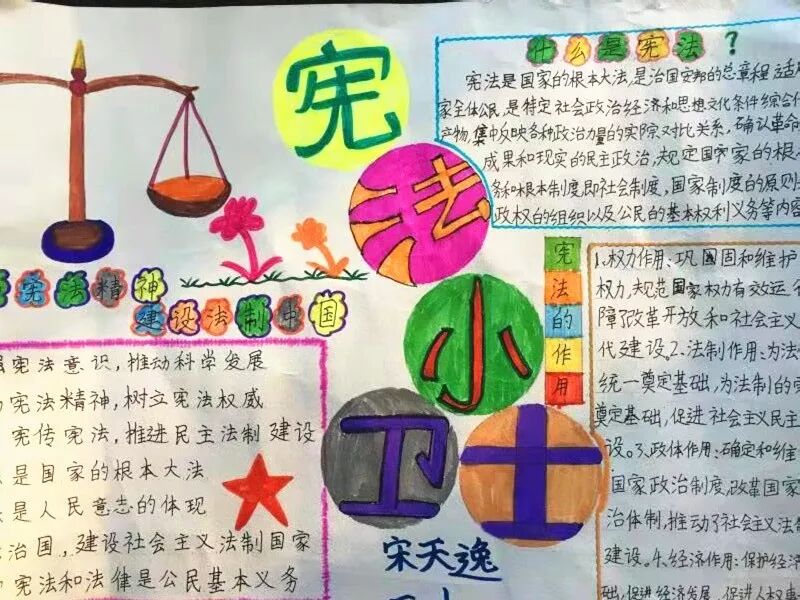 宪
法
小
卫
士
什么是宪法？
宪法是国家的根本大法,是治国安邦的总章程适
家全体公民,是特定社会政治经济和思想文化条件综合
产物,集中反映各种政治力量的实际对比关系,确认革命
成果和现实的民主政治,规定国家的根
务和根本制度即社会制度,国家制度的原则
政权的组织以及公民的基本权利义务等内容
宪法精神
建设法制中国
宪法意识,推动科学发展
宪法精神,树立宪法权威
宪传宪法,推进民主法制建设
是国家的根本大法
是人民意志的体现
治国,建设社会主义法制国家
宪法和法律是公民基本义务
宪法的作用
1、权力作用、巩固固和维护
权力,规范国家权力有效运
障了改革开放和社会主义
代建设。2、法制作用:为法
统一奠定基础,为法制的
奠定基础,促进社会主义民主
设。3、政体作用:确定和维
国家政治制度,改革国家
治体制,推动了社会主义法
建设。4、经济作用:保护经济
础,促进经济发展,促进人权事
宋天逸